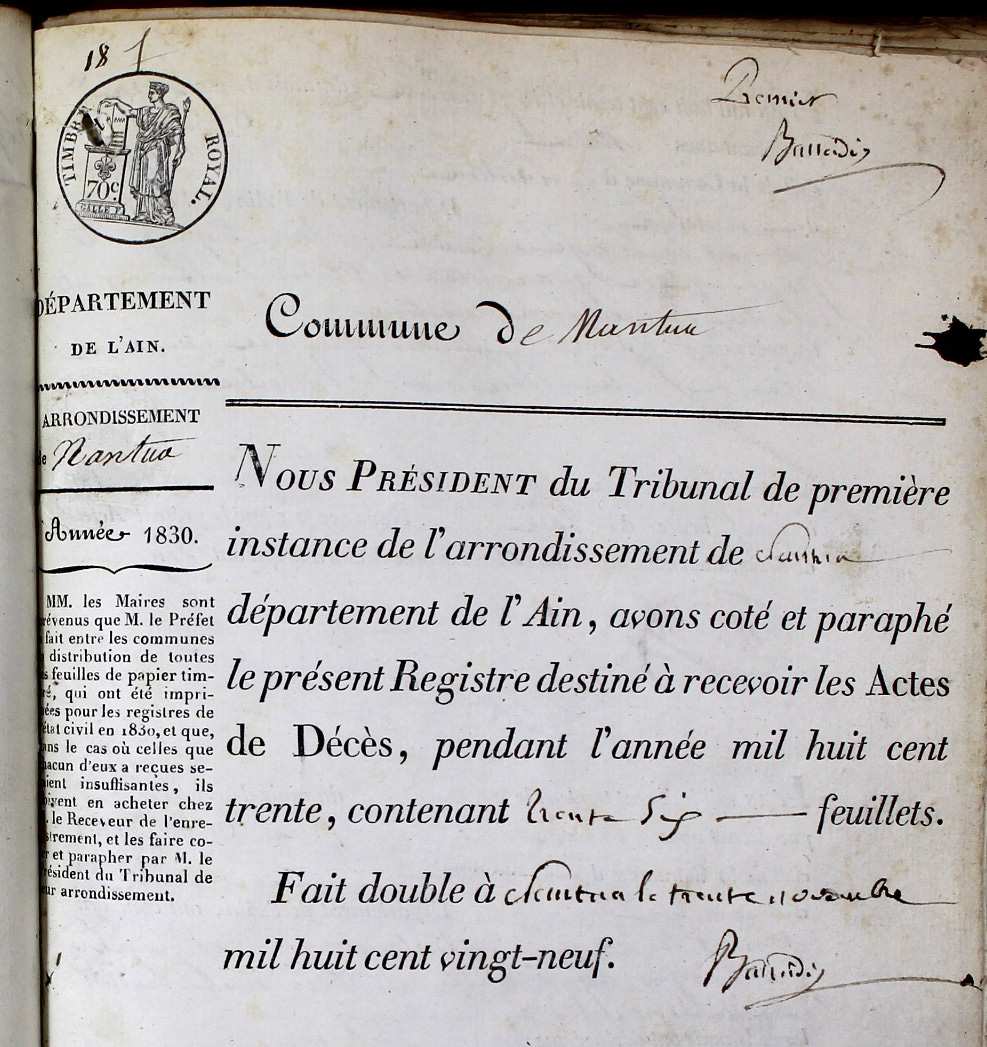 18 1
TIMBRE ROYAL.
70c
Premier
DÉPARTEMENT
DE L'AIN.
ARRONDISSEMENT
de Nantua
Année 1830.
MM. les Maires sont
révenus que M. le Préfet
fait entre les communes
distribution de toutes
s feuilles de papier tim-
ré, qui ont été impri-
ées pour les registres de
état civil en 1830, et que,
ans le cas où celles que
hacun d'eux a reçues se-
aient insuffisantes, ils
oivent en acheter chez
. le Receveur de l'enre-
strement, et les faire co-
r et parapher par M. le
résident du Tribunal de
ur arrondissement.
Commune de Nantua
NOUS PRÉSIDENT du Tribunal de première
instance de l'arrondissement de Nantua
département de l'Ain, avons coté et paraphé
le présent Registre destiné à recevoir les Actes
de Décès, pendant l'année mil huit cent
trente, contenant trente Six feuillets.
Fait double à Nantua le trente novembre
mil huit cent vingt-neuf.